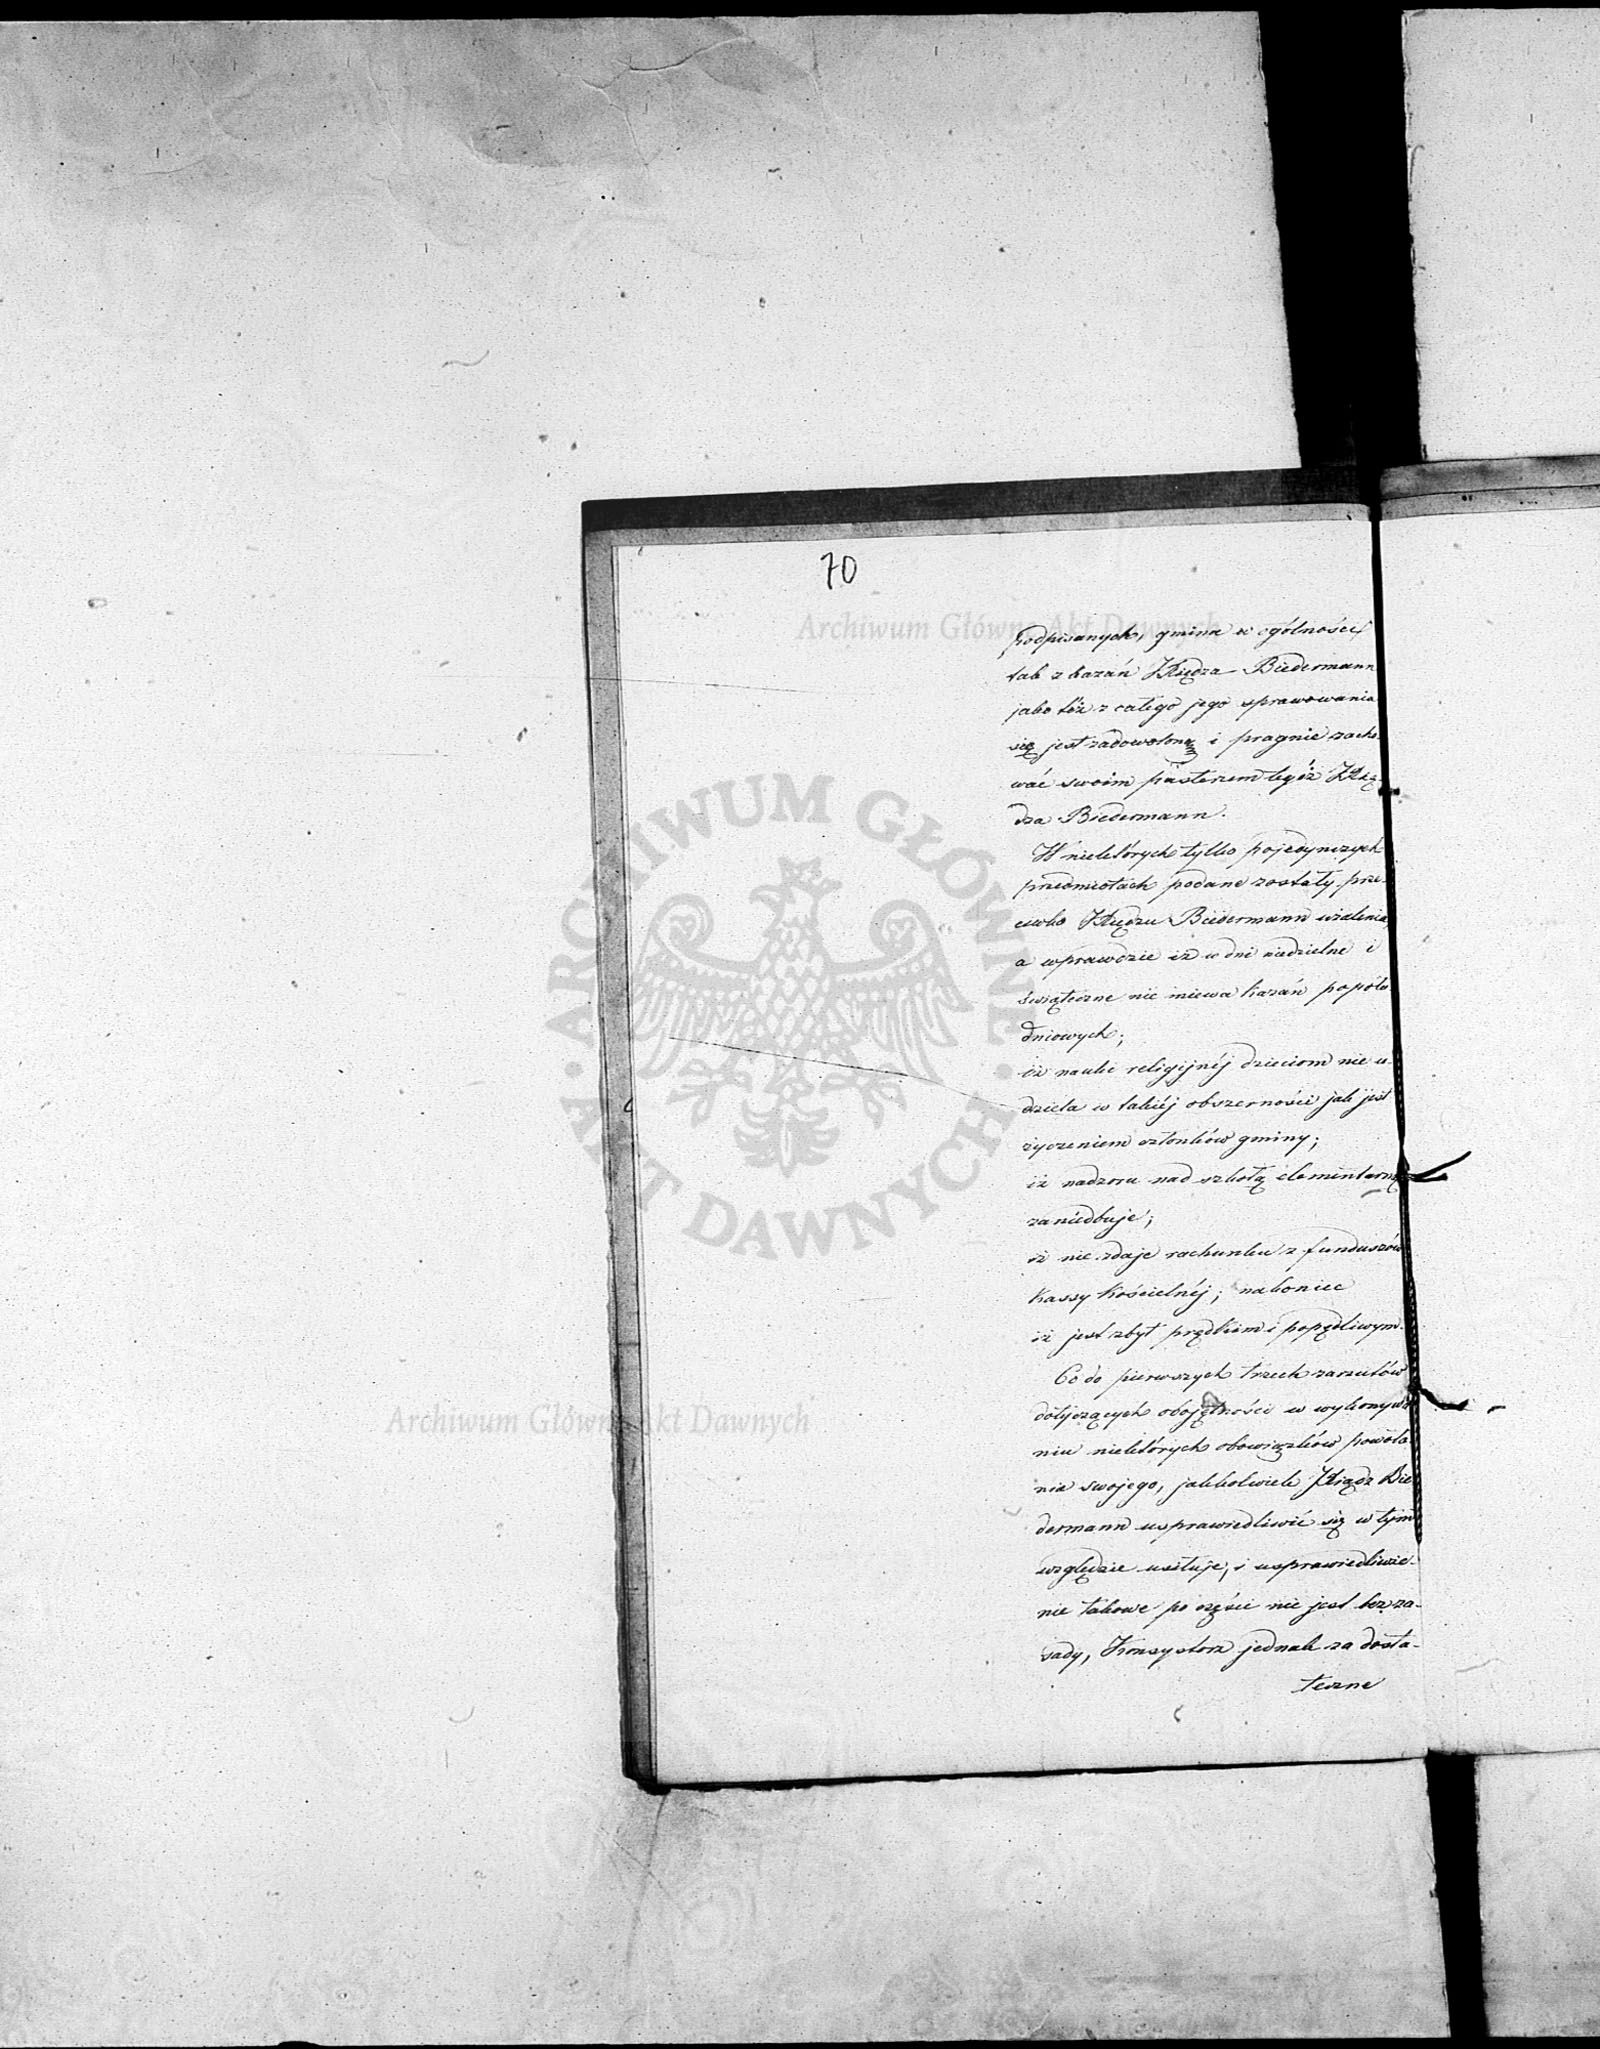 70
podpisanych, gmina w ogólności
tak z kazań Xiędza Biedermann
jako téż z całego jego sprawowania
się jest zadowoloną i pragnie zacho-
wać swoim pasterzem tegóż Xię-
dza Biedermann.
W niektórych tylko pojedynczych
przedmiotach podane zostały prze-
ciwko Xiędzu Biedermann użalenia,
a wprawdzie iż w dni niedzielne i
świąteczne nie miewa kazań popołu-
dniowych;
iż nauki religijnéj dzieciom nie u-
dziela w takiéj obszerności jak jest
życzeniem członków gminy;
iż nadzoru nad szkołą elementarną
zaniedbuje;
iż nie zdaje rachunku z funduszów
Kassy Kościelnéj; nakoniec
iż jest zbyt prędkim i popędliwym.
Co do pierwszych trzech zarzutów
dotyczących obojętności w wykonywa-
niu niektórych obowiązków powoła-
nia swojego, jakkolwiek Xiądz Bie-
dermann usprawiedliwić się w tym
względzie usiłuje, i usprawiedliwie-
nie takowe po części nie jest bez za-
sady, Konsystorz jednak za dosta-
teczne
Archiwum Główne Akt Dawnych
ARCHIWUM GŁÓWNE AKT DAWNYCH
Archiwum Główne Akt Dawnych